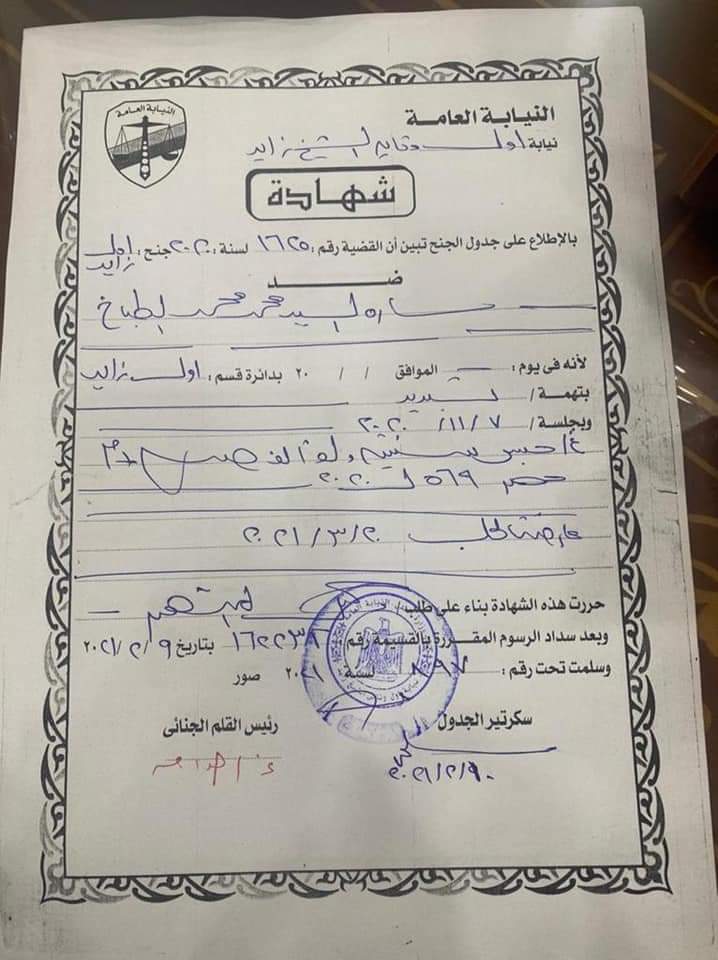 النيابة العامة
النيابة العامة
نيابة اول وقايه الشيخ زايد
شهادة
بالإطلاع على جدول الجنح تبين أن القضية رقم : ١٦٢٥ لسنة : ٢٠٢٠ جنح : اول زايد
ضد
ساره السيد محمد محمد الطباخ
لأنه فى يوم : الموافق / / ٢٠ بدائرة قسم : اول زايد
بتهمة / تبديد
وبجلسة / ٧ / ١١ / ٢٠٢٠
غ / حبس سنتين و الف
حصر ٥٦٩ ل ٢٠٢٠
٢٠ / ٣ / ٢٠٢١
حررت هذه الشهادة بناء على طلب / المتهم
وبعد سداد الرسوم المقررة بالقسيمة رقم بتاريخ ٩ / ٢ / ٢٠٢١
وسلمت تحت رقم : لسنة ٢٠٢١ صور
سكرتير الجدول
رئيس القلم الجنائى